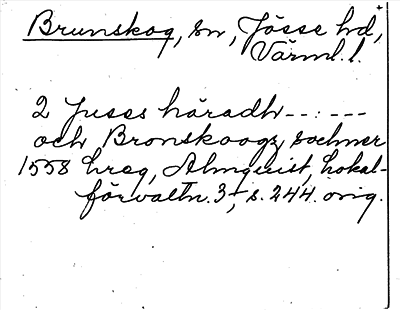 Brunskog, sn, Jösse hd,
Värml. l.
2 Juses häradh --:---
och Bronskoogz sochner
1558 hreg, Almquist, Lokal-
förvaltn. 3, s. 244. orig.